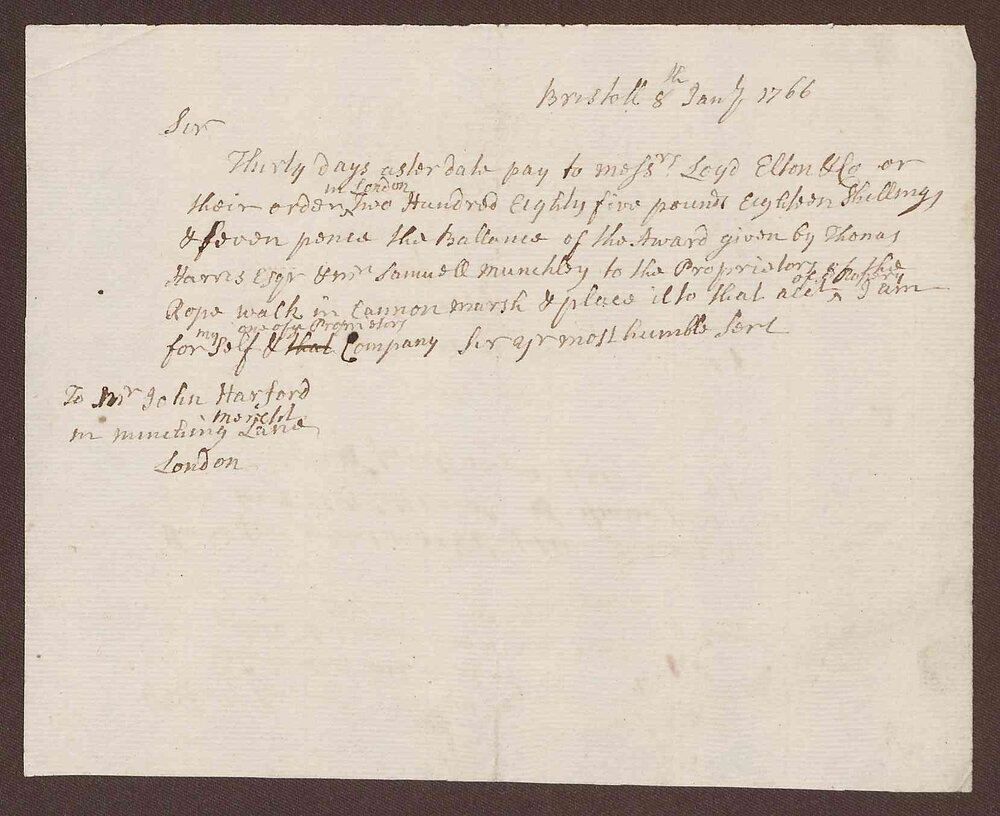 Bristoll 8th Jany 1766
Sir
Thirty days after date pay to messrs. Loyd Elton & Co or
in London
their order Two Hundred Eighty five pounds Eighteen Shillings
& Seven pence the Ballance of the Award given by Thomas
Harris Esqr & mr Samuell Munckley to the Proprietors of the
Rope walk in Cannon marsh & place it to that acct I am
my one of ye Proprietors
for Self & that Company Sir yr most humble Sert
To Mr John Harford
mercht
in minching Lane
London